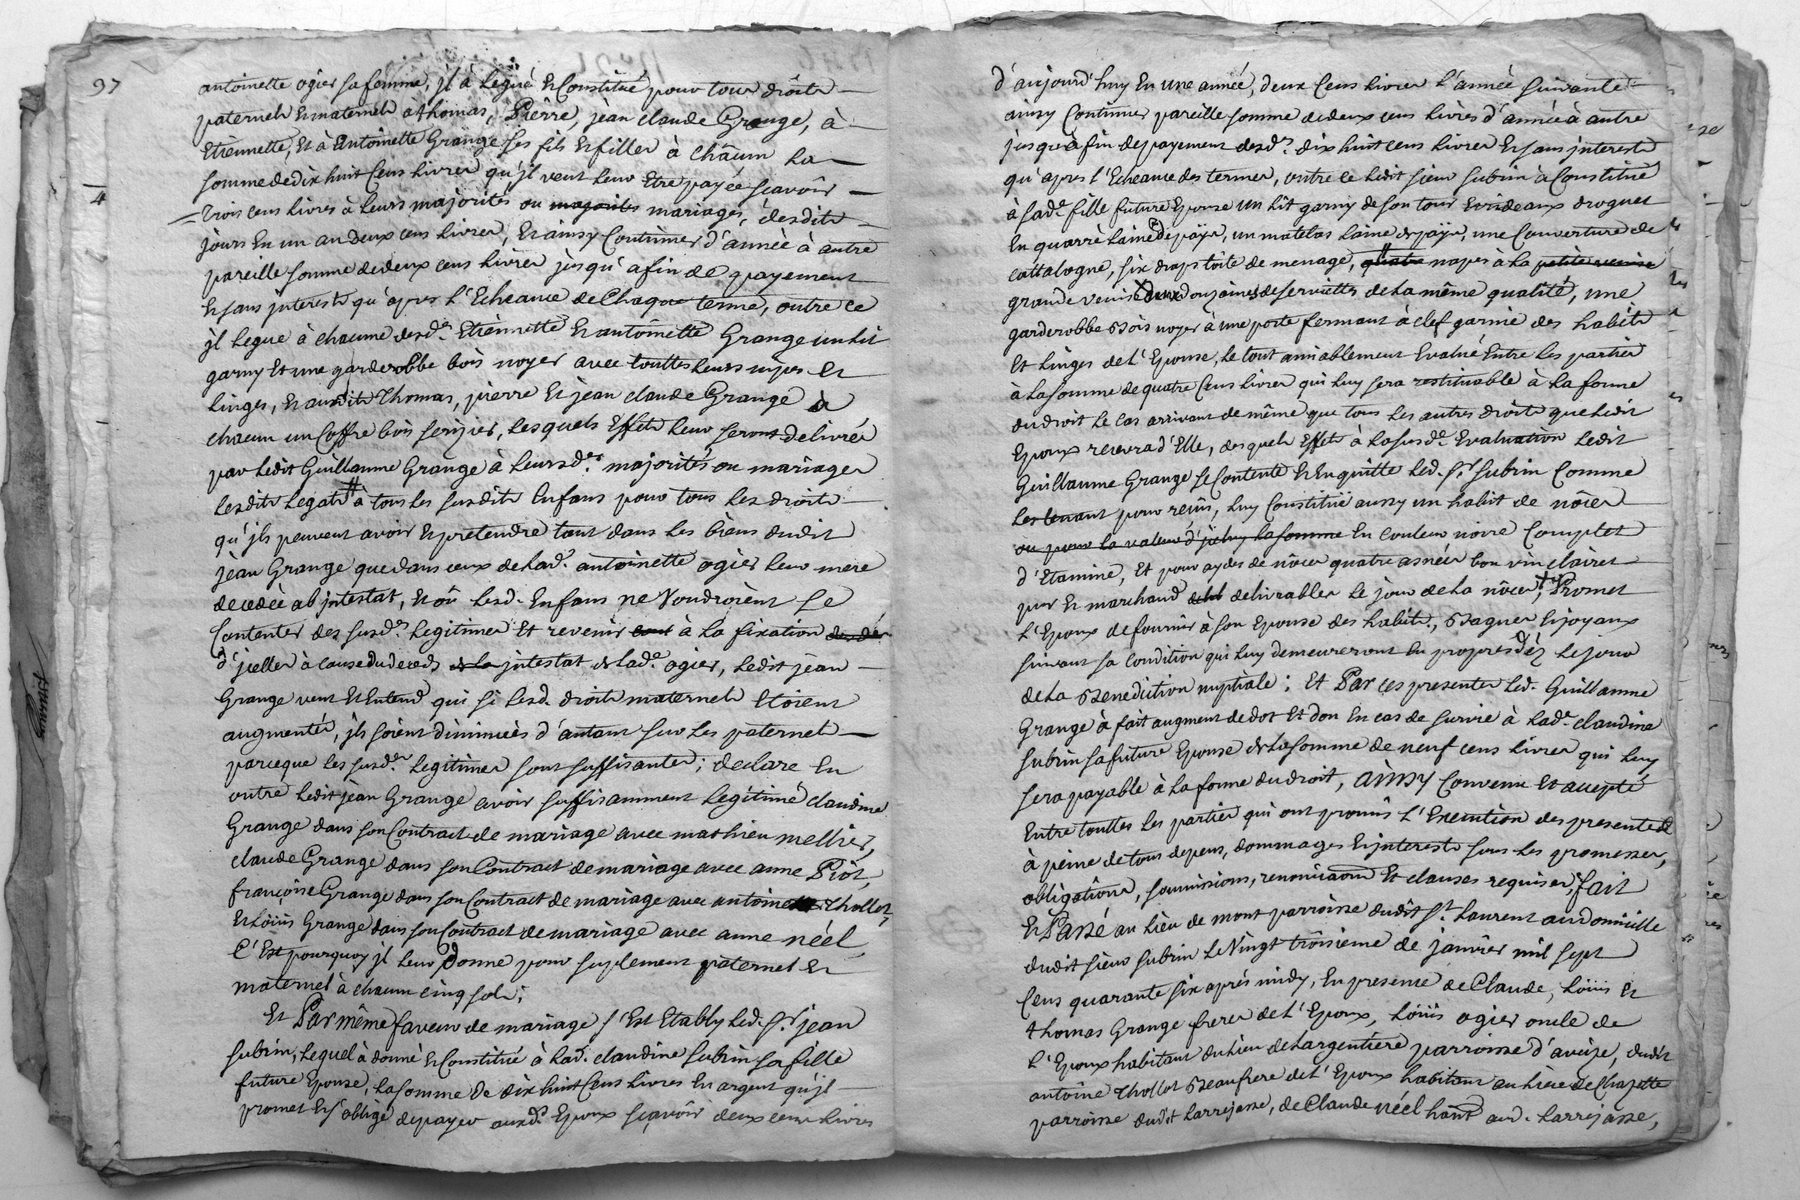 97
antoinette ogier sa femme, jl à legué et Constitué pour tous droits
paternels et maternels à thomas, Pierre, jean claude Grange, à
Etiennette, et à Antoinette Grange ses fils et filles à châcun la
somme de dix huit Cens livres qu'jl veut leur Etre payée sçavoir
trois cens livres à leurs majorités ou majorités mariages, desdits
jours en un an deux cens livres, et ainsy Continuer d'année à autre
pareille somme de deux cens livres jusqu'a fin de payement
et sans jnterests qu'apres l'Echeance de Chaque terme, outre ce
jl legue à chacune desd.es Etiennette et antoinette Grange un lit
garny et une garderobbe bois noyer avec touttes leurs nipes et
linges, et ausdits Thomas, pierre et jean claude Grange à
chacun un Coffre bois serizier, lesquels Effets leur seront delivrés
par ledit Guillaume Grange à leursd.es majorités ou mariages
lesdits legats # à tous les susdits Enfans pour tous les droits
qu'jls peuvent avoir et pretendre tant dans les biens dudit
jean Grange que dans ceux de lad.e antoinette ogier leur mere
decedée ab jntestat, et où lesd. Enfans ne Voudroient se
Contenter des susd.es legitimes et revenir à la fixation
d'jcelles à cause du deceds jntestat de lad.e ogier, ledit jean
Grange veut et Entend qui si lesd. droits maternels Etoient
augmentés, jls soient diminués d'autant sur les paternels
parceque les susd.es legitimes sont suffisantes; declare en
outre ledit jean Grange avoir suffisamment legitimé claudine
Grange dans son Contract de mariage avec mathieu mellier,
claude Grange dans son Contract de mariage avec anne Piot,
françoise Grange dans son Contract de mariage avec antoine thollot,
et Loüis Grange dans son Contract de mariage avec anne néel
C'Est pourquoy jl leur donne pour suplement paternel et
maternel à chacun cinq sols;
Et Par même faveur de mariage s'Est Etably led. S.r jean
subrin, lequel à donné et Constitué à lad.e claudine subrin sa fille
future Epouse, la somme de dix huit Cens livres en argent qu'jl
promet et s'oblige de payer ausd. Epoux sçavoir deux cens livres
d'aujourd'huy en une année, deux Cens livres l'année suivante
ainsy Continuer pareille somme de deux cens livres d'année à autre
jusqu'à fin de payement desd. dix huit cens livres et sans jnterests
qu'apres l'Echeance des termes, outre ce ledit sieur subrin à Constitué
à sad.e fille future Epouse un lit garny de son tour et rideaux droguet
en quarré laine du païs, un matelas laine du païs, une Couverture de
cattalogne, six draps toile de menage, quatre napes à la petite venise
grande venise deux douzaines de serviettes de la même qualité, une
garderobbe Bois noyer à une porte fermant à clef garnie des habits
et linges de l'Epouse, le tout amiablement Evalué Entre les parties
à la somme de quatre Cens livres qui luy sera restituable à la forme
du droit le cas arrivant de même que tous les autres droits que ledit
Epoux recevra d'Elle, desquels Effets à la susd.e Evaluation ledit
Guillaume Grange se Contente et En quitte led. S.r subrin Comme
les tenant pour reçûs, luy Constitüé aussy un habit de nôces
ou pour la valeur d'jceluy la somme en couleur noire Complet
d'Etamine, et pour aydes de nôces quatre asnées bon vin clairet
pur et marchand delivrables le jour de la nôce, Promet
l'Epoux de fournir à son Epouse des habits, Bagues et joyaux
suivant sa condition qui luy demeureront en propres dez le jour
de la Benediction nuptiale; Et Par ces presentes led. Guillaume
Grange à fait augment de dot et don en cas de survie à lad.e claudine
subrin sa future Epouse de la somme de neuf cens livres qui luy
sera payable à la forme du droit, Ainsy Convenu et accepté
Entre touttes les parties qui ont promis l'Execution des presentes
à peine de tous depens, dommages et jnterests sous les promesses,
obligations, soumissions, renonciaõns et clauses requises, fait
et Passé au lieu de mont parroisse dudit S.t laurent au domicille
dudit sieur subrin le Vingt troisieme de janvier mil sept
Cens quarante six après midy, En presence de Claude, Loüis et
thomas Grange freres de l'Epoux, Loüis ogier oncle de
l'Epoux habitant du lieu de Largentiere parroisse d'aveize, dudit
antoine thollot Beaufrere de l'Epoux habitant au lieu de Chazette
parroisse dudit Larrejasse, de Claude néel hãnt aud. Larrejasse,